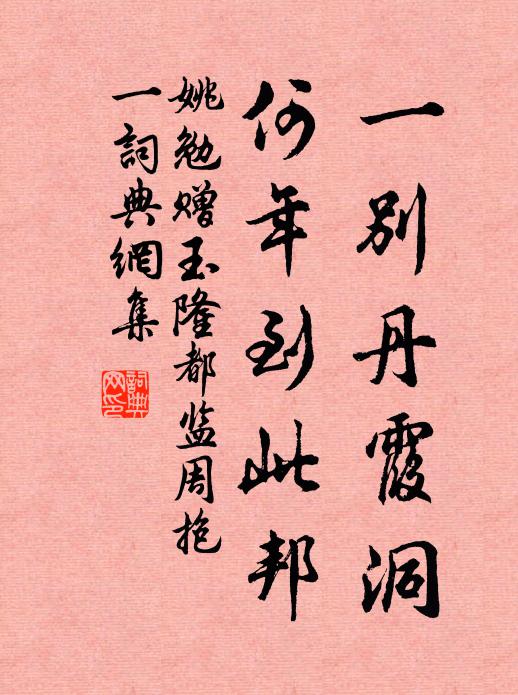 一别丹霞洞
何年到此邦
姚勉赠玉隆都监周抱
一詞典網集
詞典网印